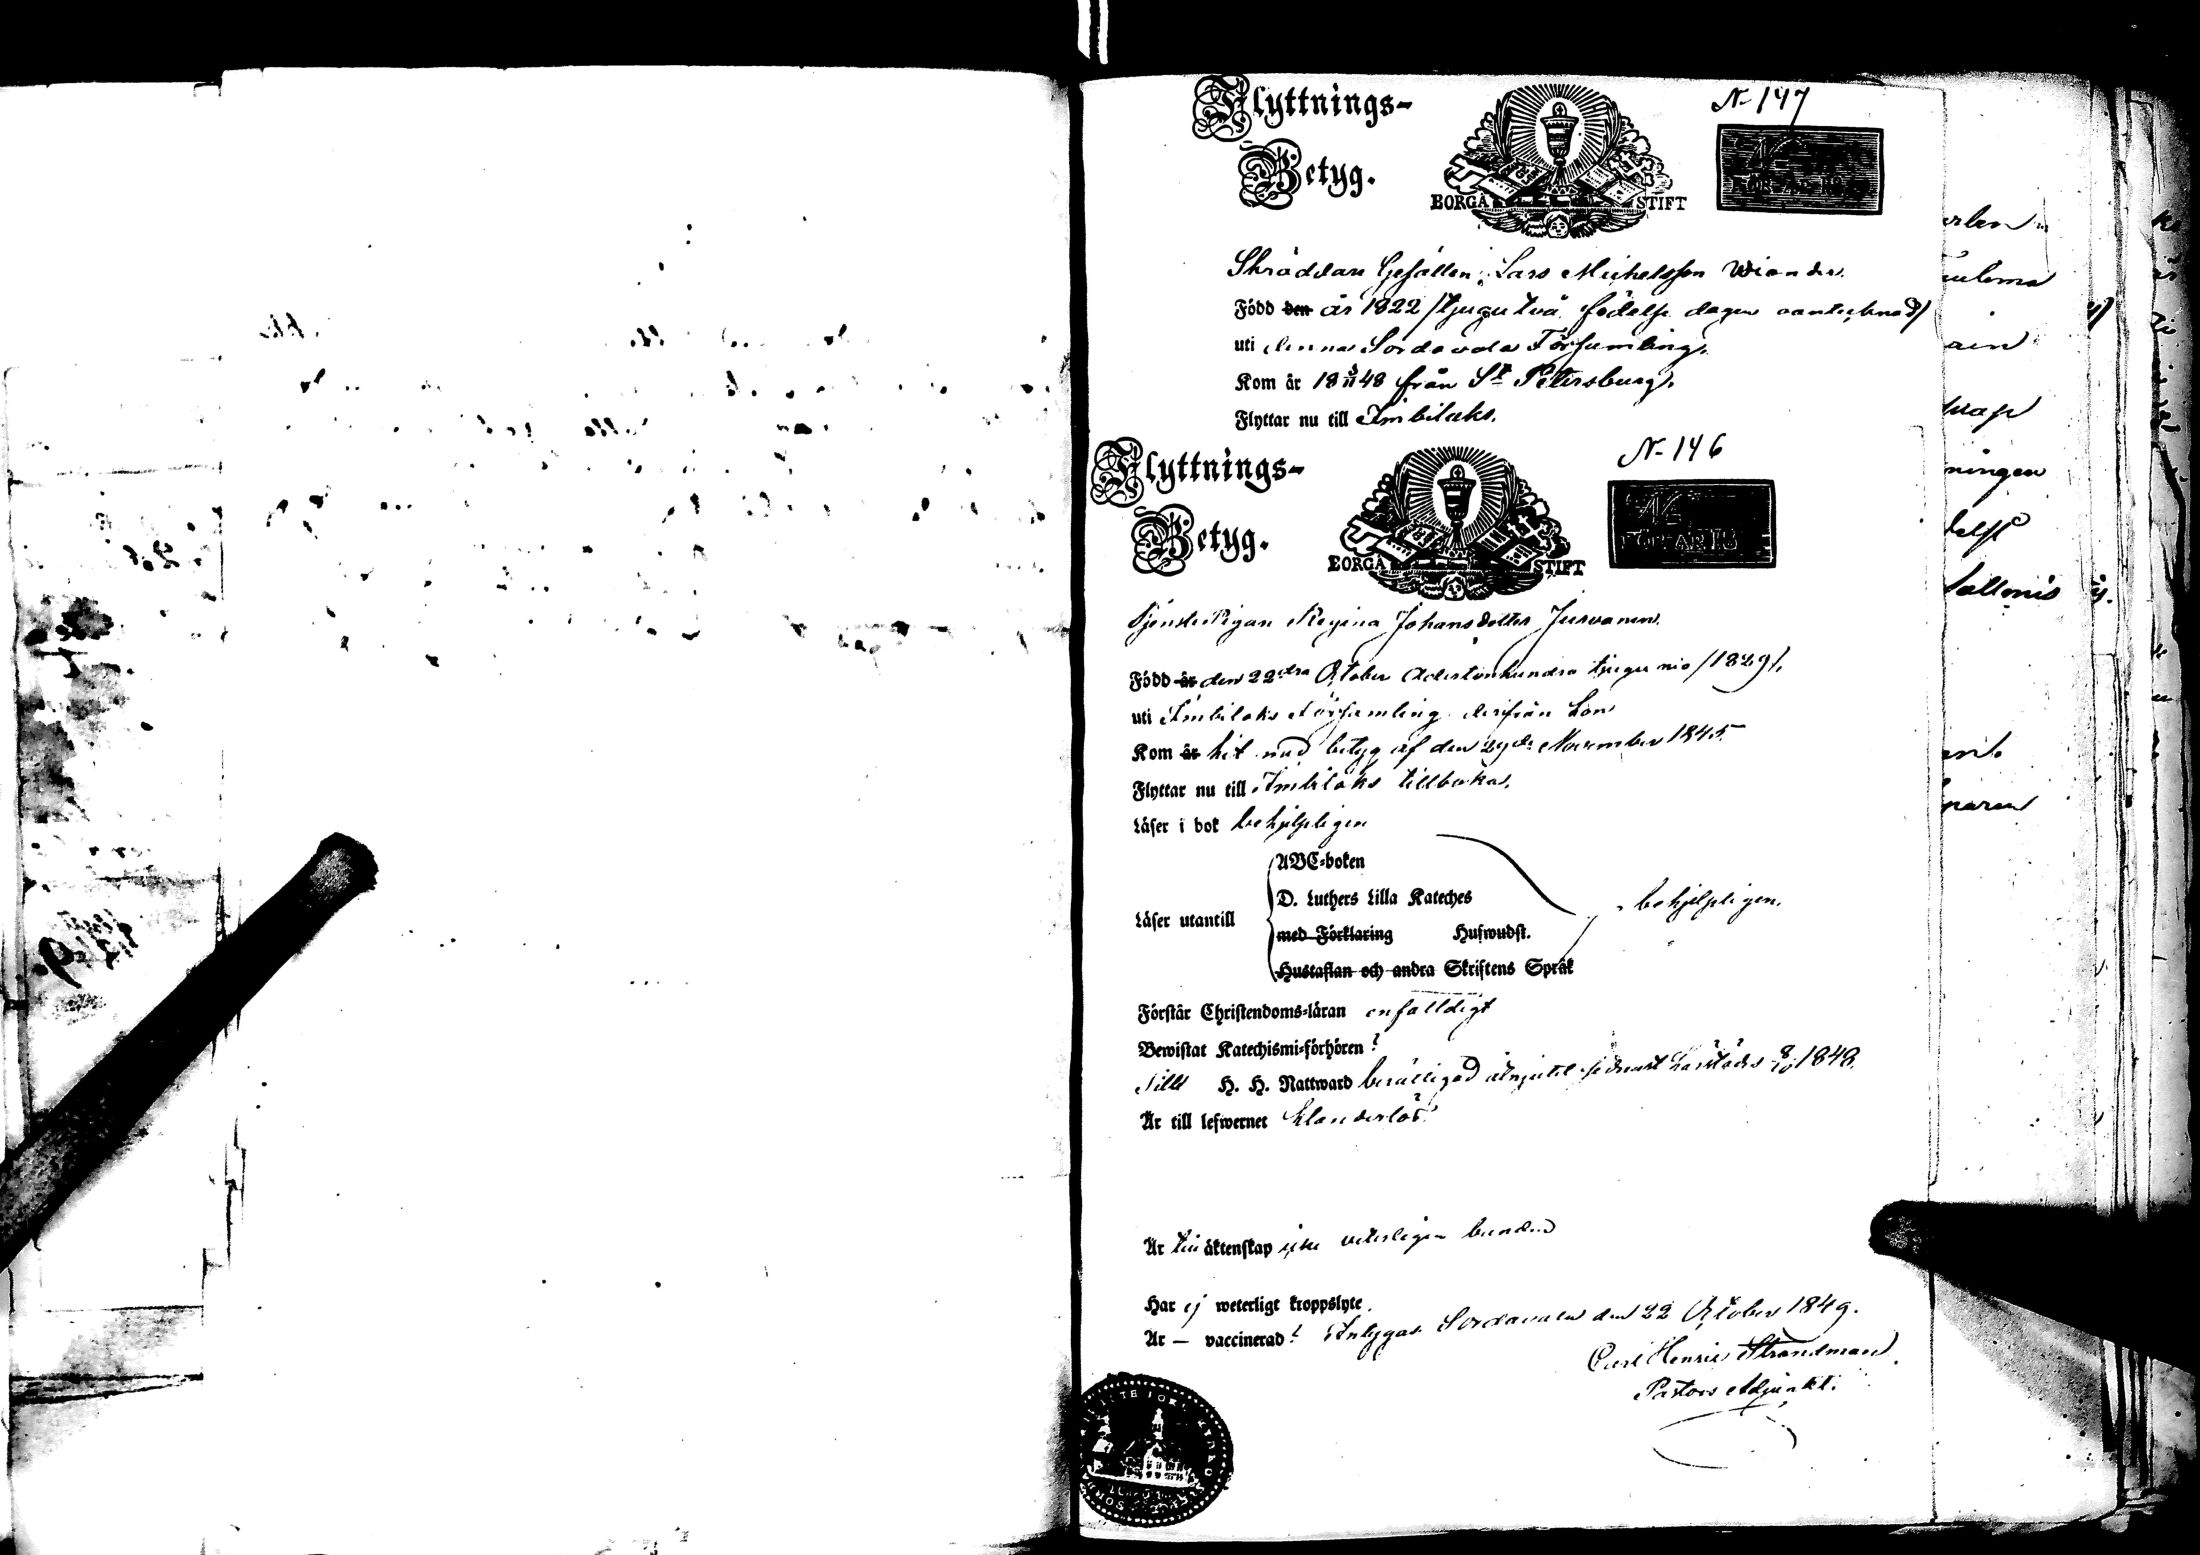 Flyttnings-
Betyg.
BORGÅ STIFT
N. 147
Skräddare Gesällen Lars Michelsson Wiander
Född den år 1822 /tjugutvå födelse dagen oantecknad/
uti denna Sordavala Församling.
Kom år 18 3/11 48 från St Petersburg.
Flyttar nu till Imbilaks.
Flyttnings-
Betyg.
BORGÅ STIFT
N. 146
No
FÖR ÅR 18
Tjenste Pigan Regina Johansdotter Jurvanen.
Född år den 22dra October Adertonhundra tjugu nio /1829/.
uti Imbilaks Församling derifrån hon
Kom år hit med betyg af den 29de November 1845
Flyttar nu till Imbilaks tillbaka.
Läser i bok behjelpligen
ABC-boken
D. Luthers Lilla Kateches
Läser utantill
behjelpligen.
med Förklaring Huswudst.
Hustaflan och andra Skriftens Språk
Förstår Christendoms-läran enfalldigt
Bewistat Katechismi-förhören ?
Till H. H. Nattward berättigad åtnjutit sednast 8/10 1848.
Är till lefwernet klanderlös
Är till äktenskap icke veterligen bunden
Har ej weterligt kroppslyte.
Är — vaccinerad? Intygas Sordavala den 22 October 1849.
Carl Henric Strandman
Pastors Adjunkt.